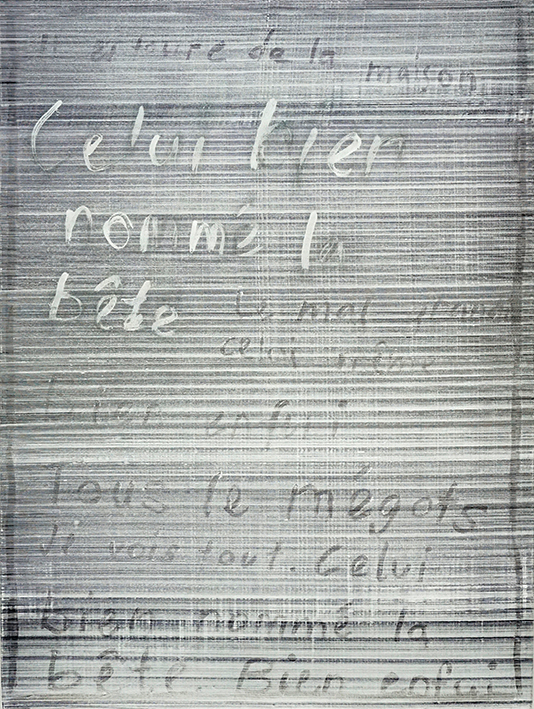 de la
maison
Celui bien
nommé la
bête Le mal
celui même
Bien enfui
Tous le mégots
vois tout. Celui
bien nommé la
bête. Bien enfui